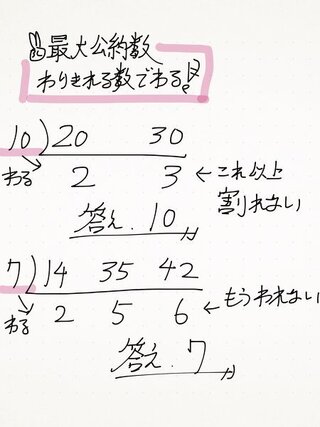 最大公約数
わりきれる数でわる！
10)20 30
わる 2 3 ←これ以上
割れない
答え. 10
7)14 35 42
わる 2 5 6 ←もうわれない
答え. 7